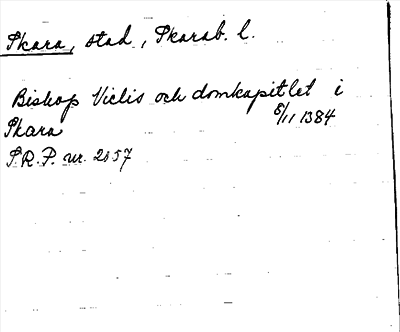 Skara, stad, Skarab. l.
Biskop Niclis och domkapitlet i
Skara 8/11 1384
S.R.P. nr. 2057